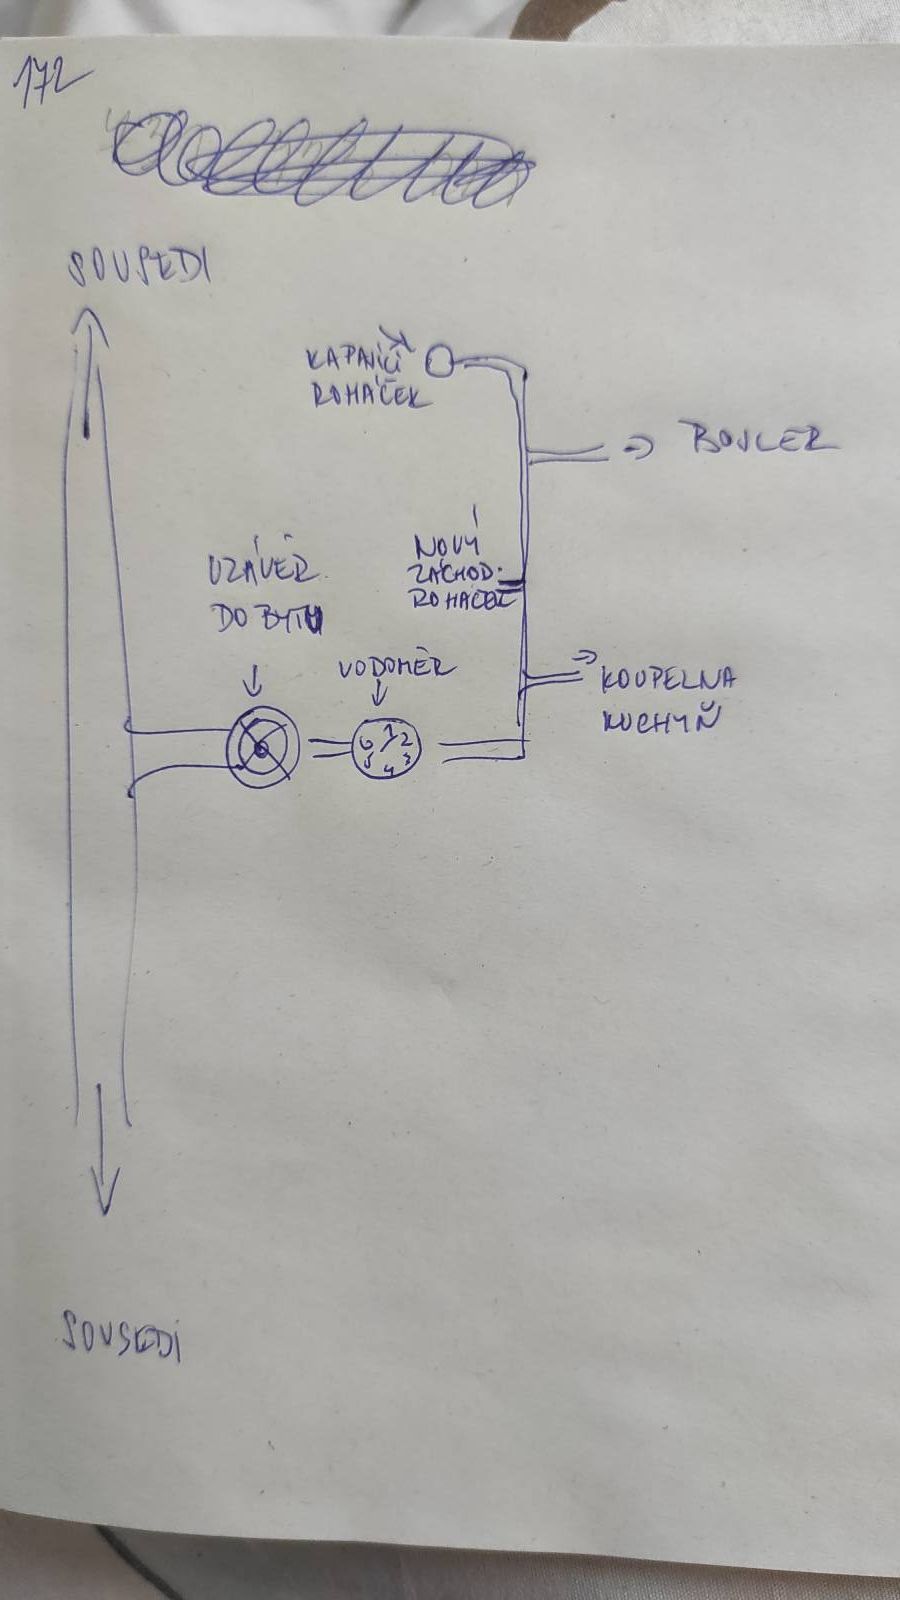 172
SOUSEDI
KAPAJÍCÍ
ROHÁČEK
BOJLER
NOVÝ
ZÁCHOD.
ROHÁČEK
UZÁVĚR
DO BYTU
VODOMĚR
KOUPELNA
KUCHYŇ
1
2
3
4
5
6
SOUSEDI